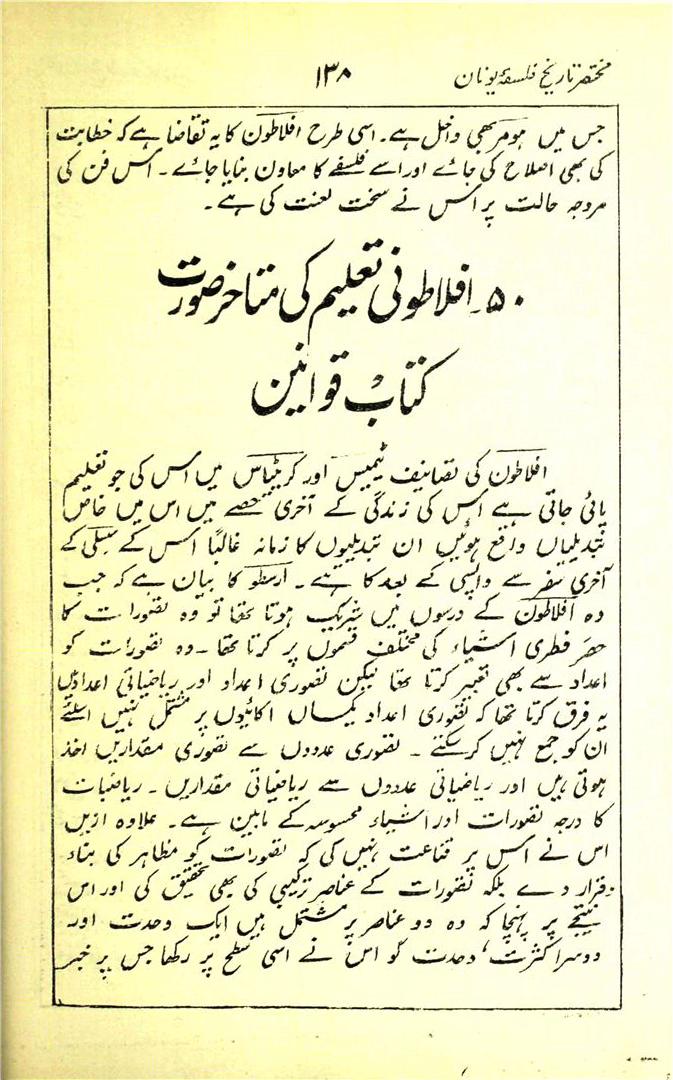 مختصر تاریخ فلسفۂ یونان
۱۳۸
جس میں ہومر بھی داخل ہے۔ اسی طرح افلاطون کا یہ تقاضا ہے کہ خطابت
کی بھی اصلاح کی جائے اور اسے فلسفے کا معاون بنایا جائے۔ اس فن کی
مروجہ حالت پر اس نے سخت لعنت کی ہے۔
۵۰۔ افلاطونی تعلیم کی متاخر صورت
کتاب قوانین
افلاطون کی تصانیف ٹیمیس اور کریٹیاس میں اس کی جو تعلیم
پائی جاتی ہے اس کی زندگی کے آخری حصے میں اس میں خاص
تبدیلیاں واقع ہوئیں ان تبدیلیوں کا زمانہ غالباً اس کے سسلی کے
آخری سفر سے واپسی کے بعد کا ہے۔ ارسطو کا بیان ہے کہ جب
وہ افلاطون کے درسوں میں شریک ہوتا تھا تو وہ تصورات کا
حصر فطری اشیاء کی مختلف قسموں پر کرتا تھا۔ وہ تصورات کو
اعداد سے بھی تعبیر کرتا تھا لیکن تصوری اعداد اور ریاضیاتی اعداد میں
یہ فرق کرتا تھا کہ تصوری اعداد یکساں اکائیوں پر مشتمل نہیں اسلئے
ان کو جمع نہیں کر سکتے۔ تصوری عددوں سے تصوری مقداریں اخذ
ہوتی ہیں اور ریاضیاتی عددوں سے ریاضیاتی مقداریں۔ ریاضیات
کا درجہ تصورات اور اشیاء محسوسہ کے مابین ہے۔ علاوہ ازیں
اس نے اس پر قناعت نہیں کی کہ تصورات کو مظاہر کی بناء
قرار دے بلکہ تصورات کے عناصر ترکیبی کی بھی تحقیق کی اور اس
نتیجے پر پہنچا کہ وہ دو عناصر پر مشتمل ہیں ایک وحدت اور
دوسرا کثرت، وحدت کو اس نے اسی سطح پر رکھا جس پر خیر